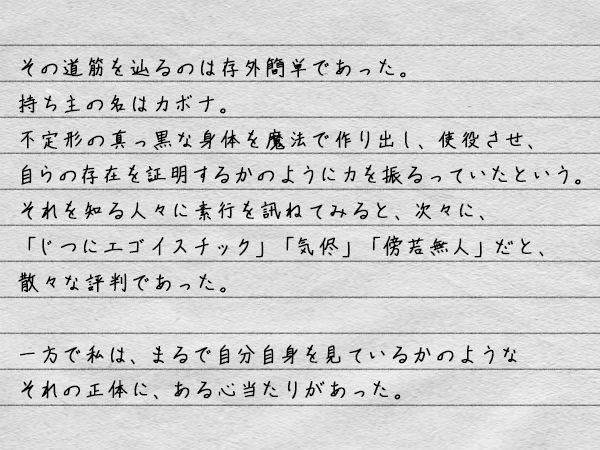 その道筋を辿るのは存外簡単であった。
持ち主の名はカボナ。
不定形の真っ黒な身体を魔法で作り出し、使役させ、
自らの存在を証明するかのように力を振るっていたという。
それを知る人々に素行を訊ねてみると、次々に、
「じつにエゴイスチック」「気侭」「傍若無人」だと、
散々な評判であった。
一方で私は、まるで自分自身を見ているかのような
それの正体に、ある心当たりがあった。